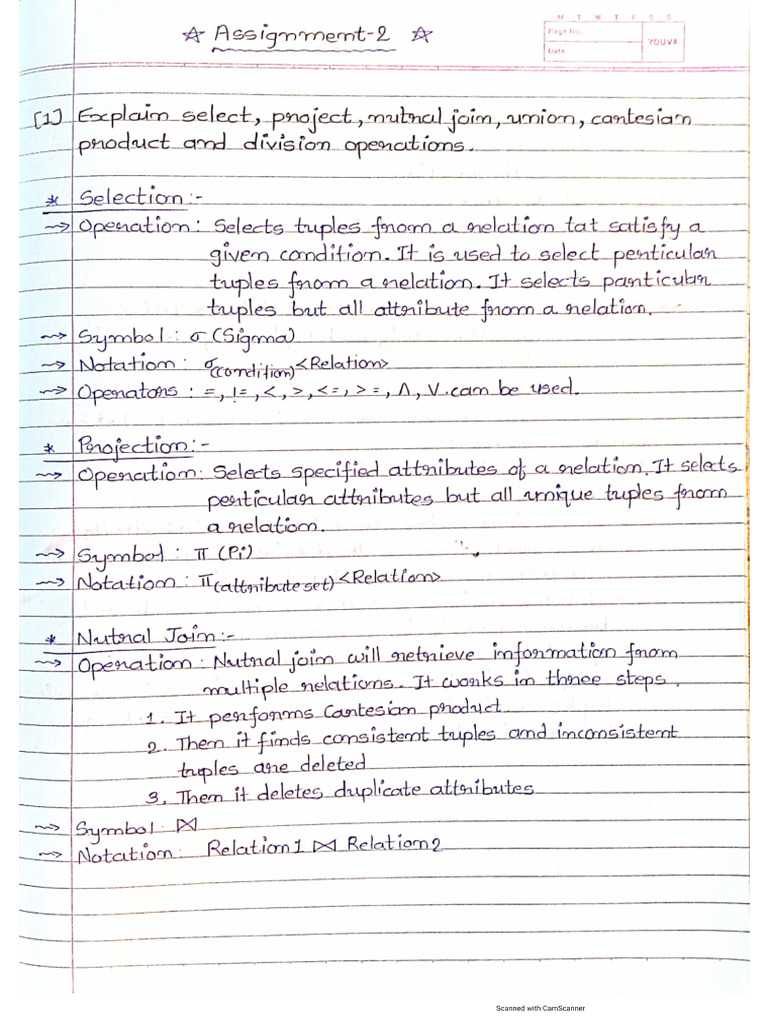 ☆ Assignment-2 ☆
M T W T F S S
Page No.:
Date:
YOUVA
[1] Explain select, project, nutral join, union, cartesian
product and division operations.
* Selection:-
⇝ Operation: Selects tuples from a relation tat satisfy a
given condition. It is used to select perticular
tuples from a relation. It selects particular
tuples but all attribute from a relation.
⇝ Symbol: σ (Sigma)
⇝ Notation: σ(condition) <Relation>
⇝ Operators: =, !=, <, >, <=, >=, Λ, V can be used.
* Projection:-
⇝ Operation: Selects specified attributes of a relation. It selects
perticular attributes but all unique tuples from
a relation.
⇝ Symbol: π (Pi)
⇝ Notation: π(attribute set) <Relation>
* Nutral Join:-
⇝ Operation: Nutral join will retrieve information from
multiple relations. It works in three steps.
1. It performs Cartesian product
2. Then it finds consistent tuples and inconsistent
tuples are deleted
3. Then it deletes duplicate attributes
⇝ Symbol: ⋈
⇝ Notation: Relation1 ⋈ Relation2
Scanned with CamScanner